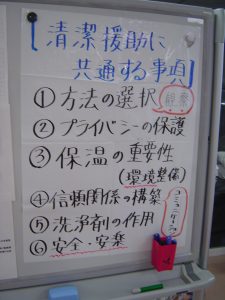 清潔援助に
共通する事項
①方法の選択 観察
②プライバシーの保護
③保温の重要性
(環境整備)
④信頼関係の構築
⑤洗浄剤の作用
⑥安全・安楽
コミュニケーション